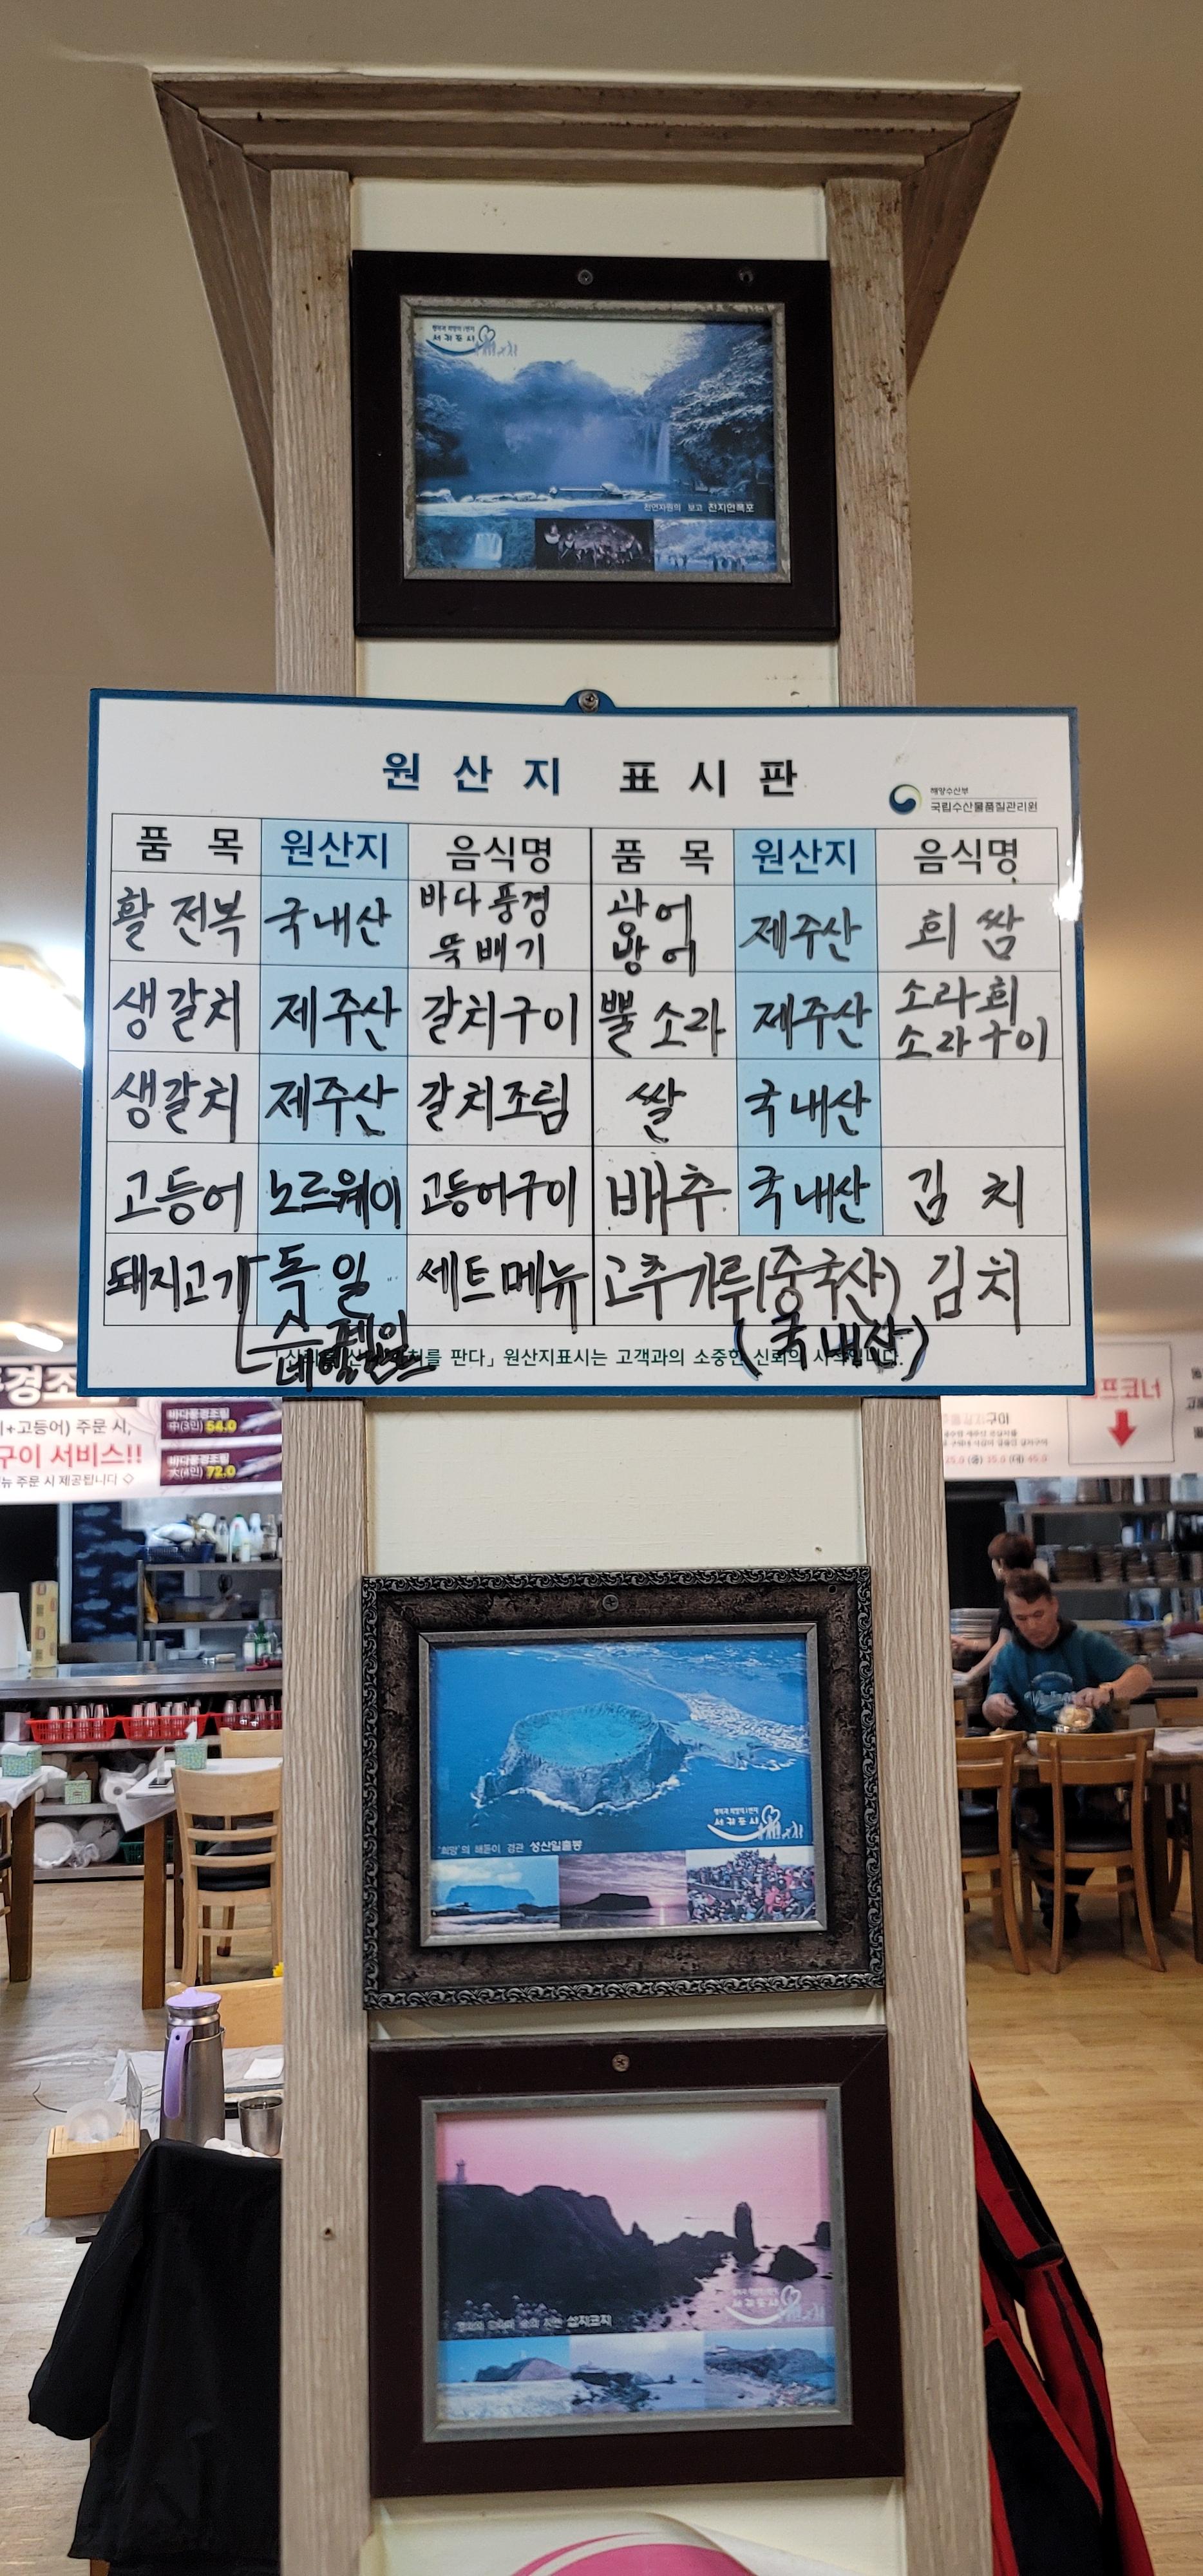 행복과 희망의 1번지
서귀포시
천연자원의 보고 천지연폭포
원산지 표시판
해양수산부
국립수산물품질관리원
품 목 원산지 음식명 품 목 원산지 음식명
활 전복 국내산 바다풍경 뚝배기 광어 방어 제주산 회 쌈
생갈치 제주산 갈치구이 뿔소라 제주산 소라회 소라구이
생갈치 제주산 갈치조림 쌀 국내산
고등어 노르웨이 고등어구이 배추 국내산 김 치
돼지고기 독일 세트메뉴 고추가루(중국산) 김치
(국내산)
를 판다」 원산지표시는 고객과의 소중한 신뢰의
경조
+고등어) 주문 시,
구이 서비스!!
뉴 주문 시 제공됩니다 ◇
바다풍경조림
中(3인) 54.0
바다풍경조림
大(4인) 72.0
구이
프코너
행복과 희망의 1번지
서귀포시
'희망'의 해돋이 경관 성산일출봉
섭지코지